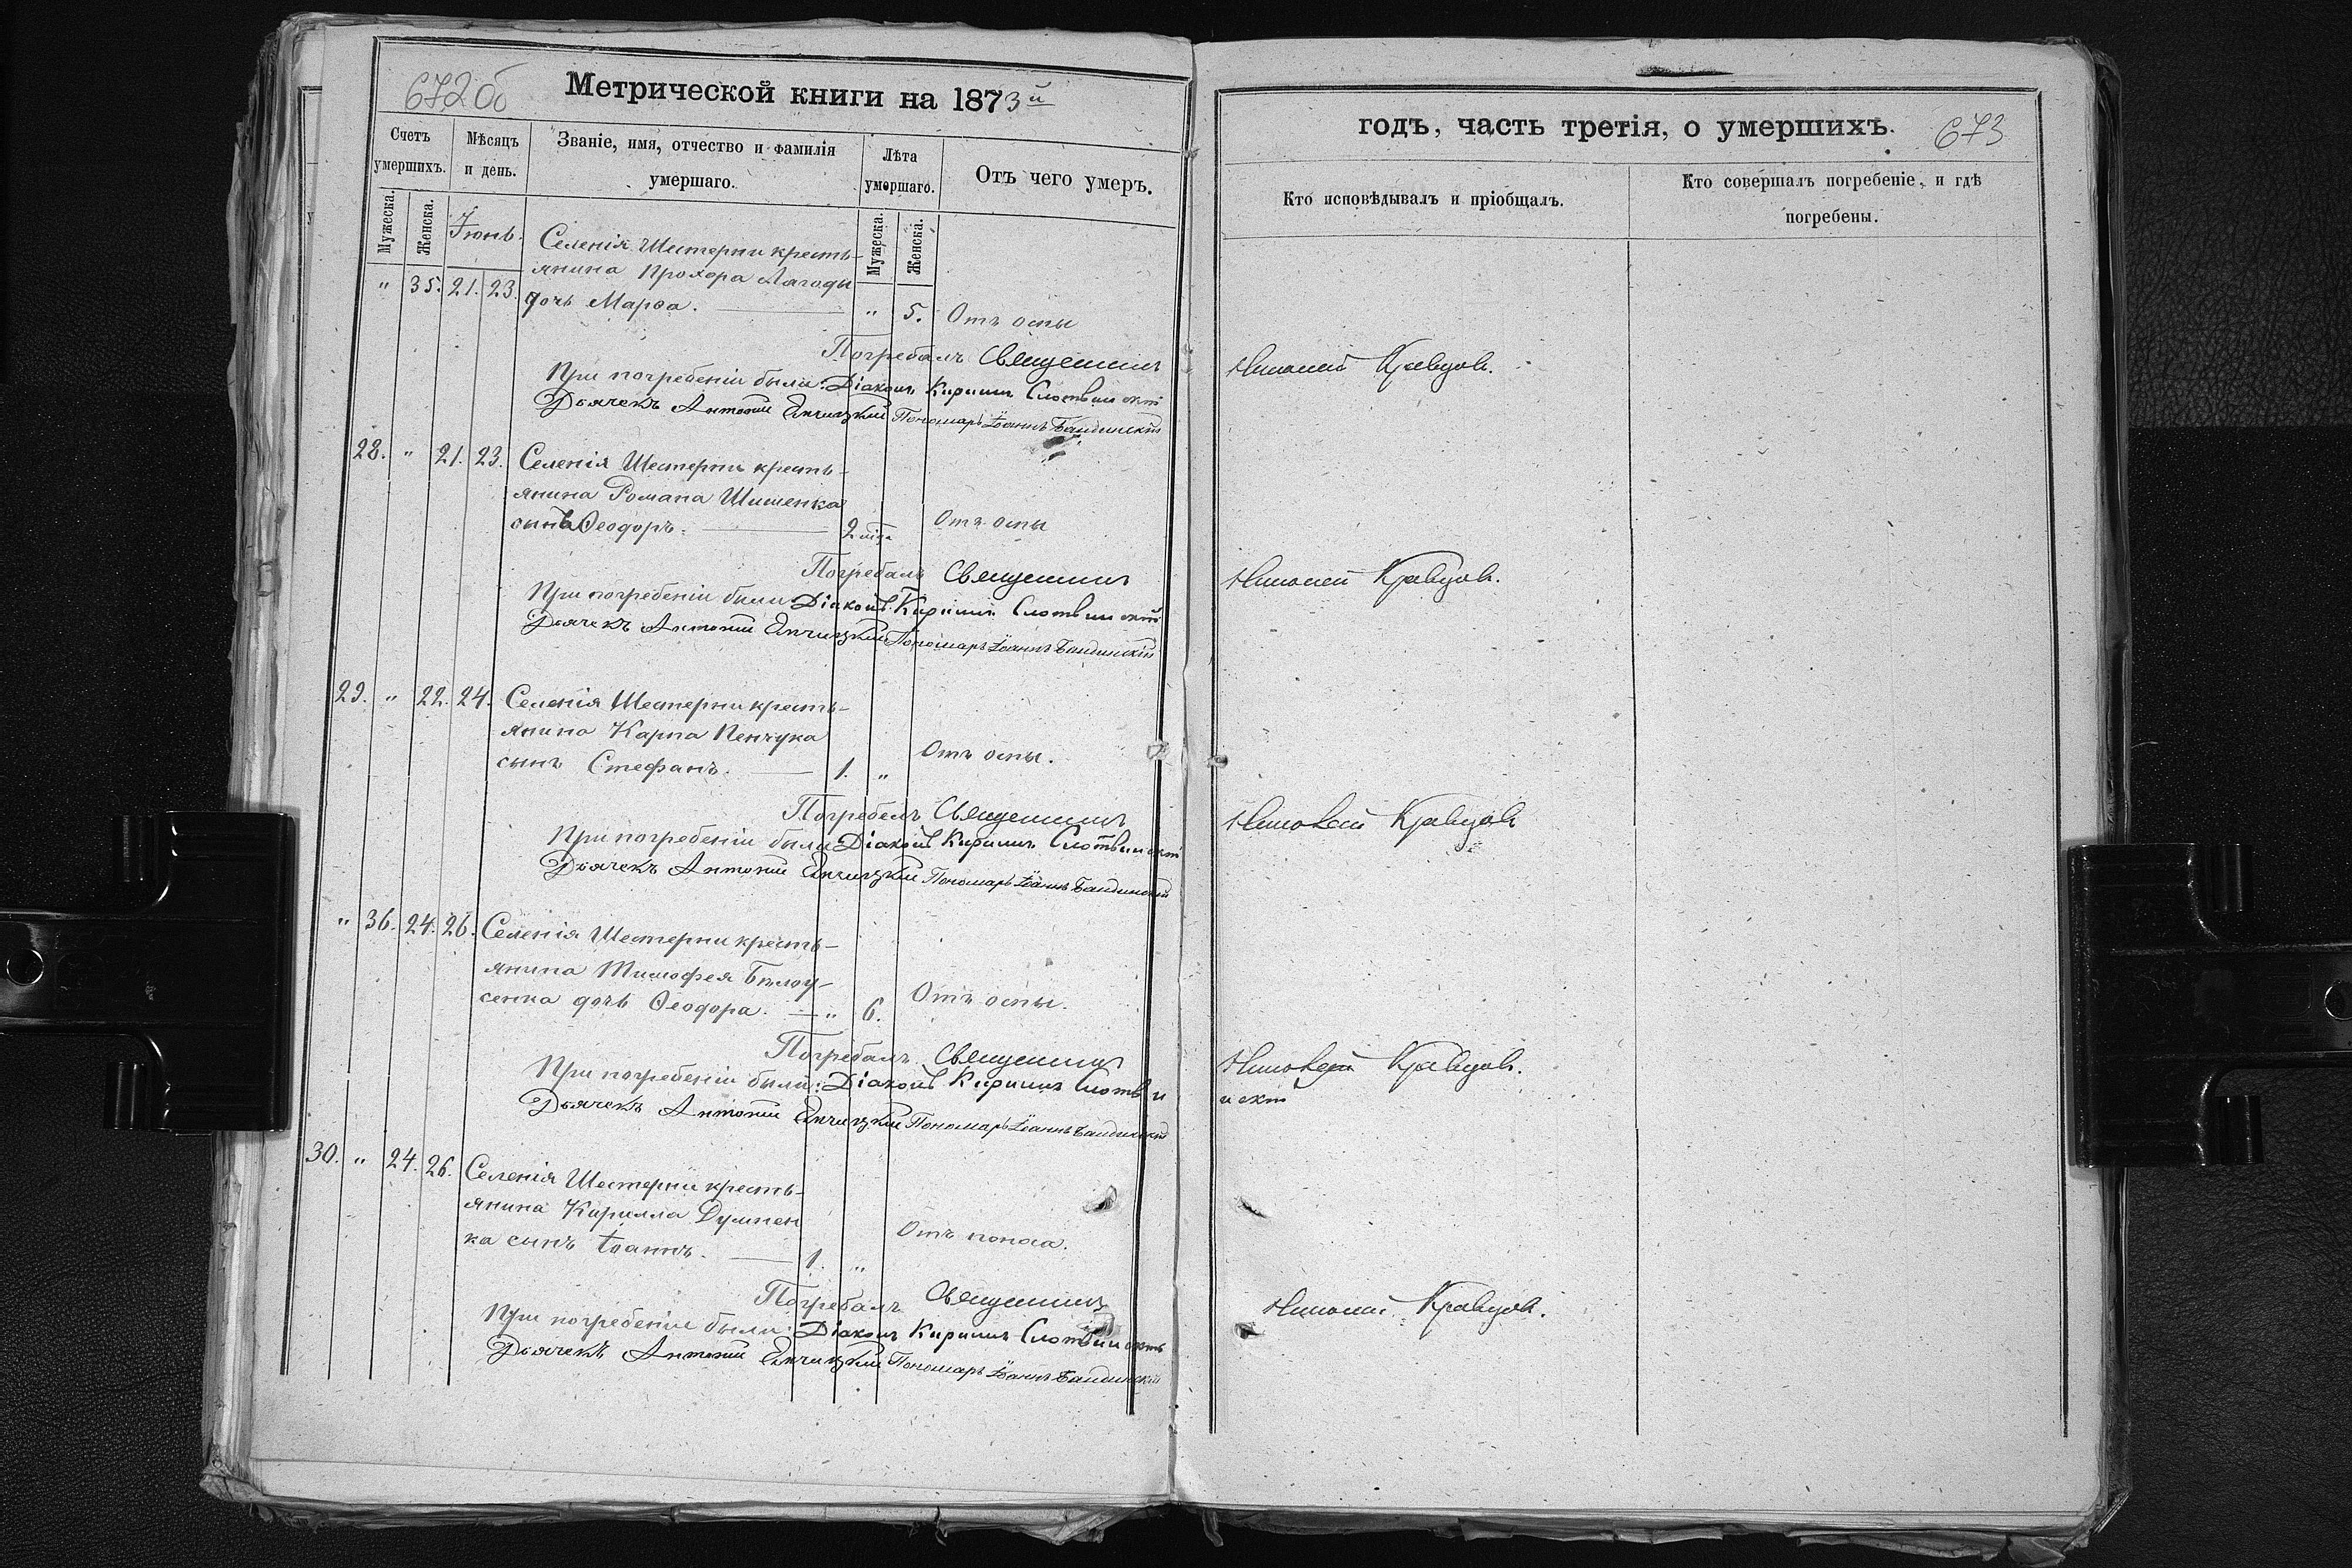 672об
Метрической книги на 1873й
Счетъ умершихъ.
Мѣсяцъ и день.
Званіе, имя, отчество и фамилія умершаго.
Лѣта умершаго.
Отъ чего умеръ.
Мужеска.
Женска.
Іюнь.
Мужеска.
Женска.
Селенія Шестерни кресть-
янина Прохора Лагоды
" 35. 21. 23. дочь Марѳа. " 5. Отъ оспы
Погребалъ Священникъ Николай Кравцовъ.
При погребеніи были: Діаконъ Кириллъ Слотвинскій
Дьячекъ Антоній Пономарь Іоаннъ
28. " 21. 23. Селенія Шестерни кресть-
янина Романа Шишенка
сынъ Ѳеодоръ. 2 Отъ оспы
Погребалъ Священникъ Николай Кравцовъ.
При погребеніи были Діаконъ Кириллъ Слотвинскій
Дьячекъ Антоній Пономарь Іоаннъ
29. " 22. 24. Селенія Шестерни кресть-
янина Карпа Пенчука
сынъ Стефанъ. 1. " Отъ оспы.
Погребалъ Священникъ Николай Кравцовъ
При погребеніи были Діаконъ Кириллъ Слотвинскій
Дьячекъ Антоній Пономарь Іоаннъ
" 36. 24. 26. Селенія Шестерни кресть-
янина Тимофея Бѣлоу-
сенка дочь Ѳеодора. " 6. Отъ оспы.
Погребалъ Священникъ Николай Кравцовъ.
При погребеніи были: Діаконъ Кириллъ Слотви
нскій
Дьячекъ Антоній Пономарь Іоаннъ
30. " 24. 26. Селенія Шестерни кресть-
янина Кирилла Думпен
ка сынъ Іоаннъ. 1. " Отъ поноса.
Погребалъ Священникъ Николай Кравцовъ.
При погребеніи были: Діаконъ Кириллъ Слотвинскій
Дьячекъ Антоній Пономарь Іоаннъ
годъ, часть третія, о умершихъ. 673
Кто исповѣдывалъ и пріобщалъ.
Кто совершалъ погребеніе, и гдѣ
погребены.